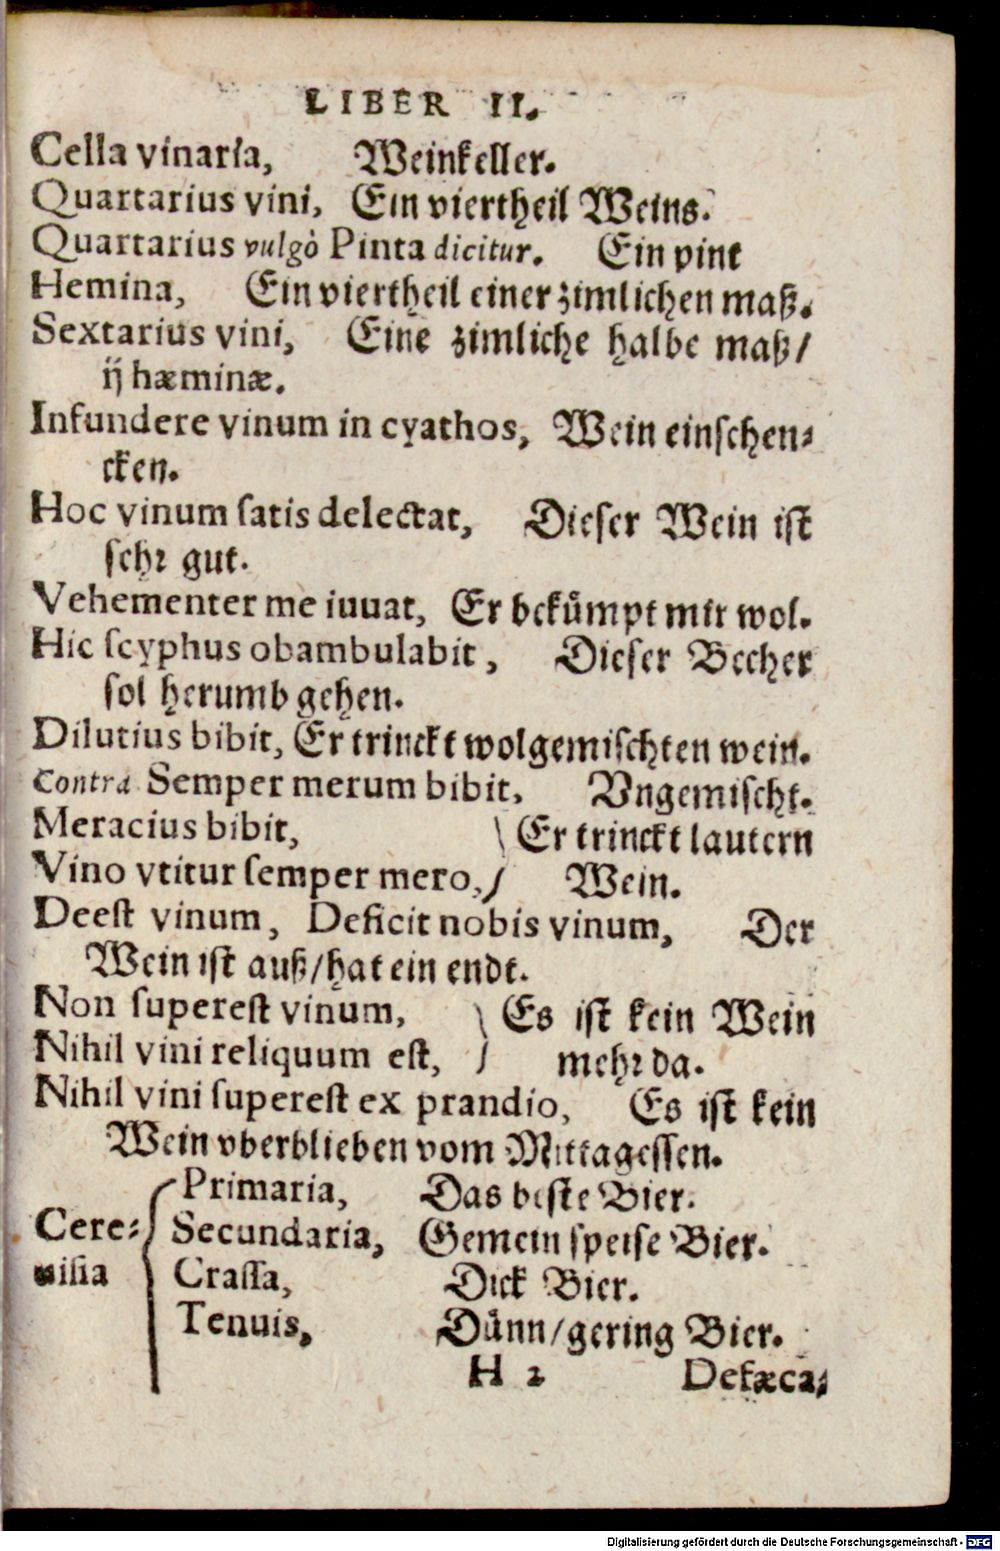 LIBER II.
Cella vinaria, Weinkeller.
Quartarius vini, Ein viertheil Weins.
Quartarius vulgò Pinta dicitur. Ein pint
Hemina, Ein viertheil einer zimlichen maß.
Sextarius vini, Eine zimliche halbe maß/
ij hæminæ.
Infundere vinum in cyathos, Wein einschen⸗
cken.
Hoc vinum satis delectat, Dieser Wein ist
sehr gut.
Vehementer me iuvat, Er bekümpt mir wol.
Hic scyphus obambulabit, Dieser Becher
sol herumb gehen.
Dilutius bibit, Er trinckt wolgemischten wein.
Contra Semper merum bibit, Vngemischt.
Meracius bibit, \ Er trinckt lautern
Vino vtitur semper mero, / Wein.
Deest vinum, Deficit nobis vinum, Der
Wein ist auß/hat ein endt.
Non superest vinum, \ Es ist kein Wein
Nihil vini reliquum est, / mehr da.
Nihil vini superest ex prandio, Es ist kein
Wein vberblieben vom Mittagessen.
Primaria, Das beste Bier.
Cere⸗ Secundaria, Gemein speise Bier.
visia Crassa, Dick Bier.
Tenuis, Dünn/gering Bier.
H 2 Defæca⸗
Digitalisierung gefördert durch die Deutsche Forschungsgemeinschaft - DFG